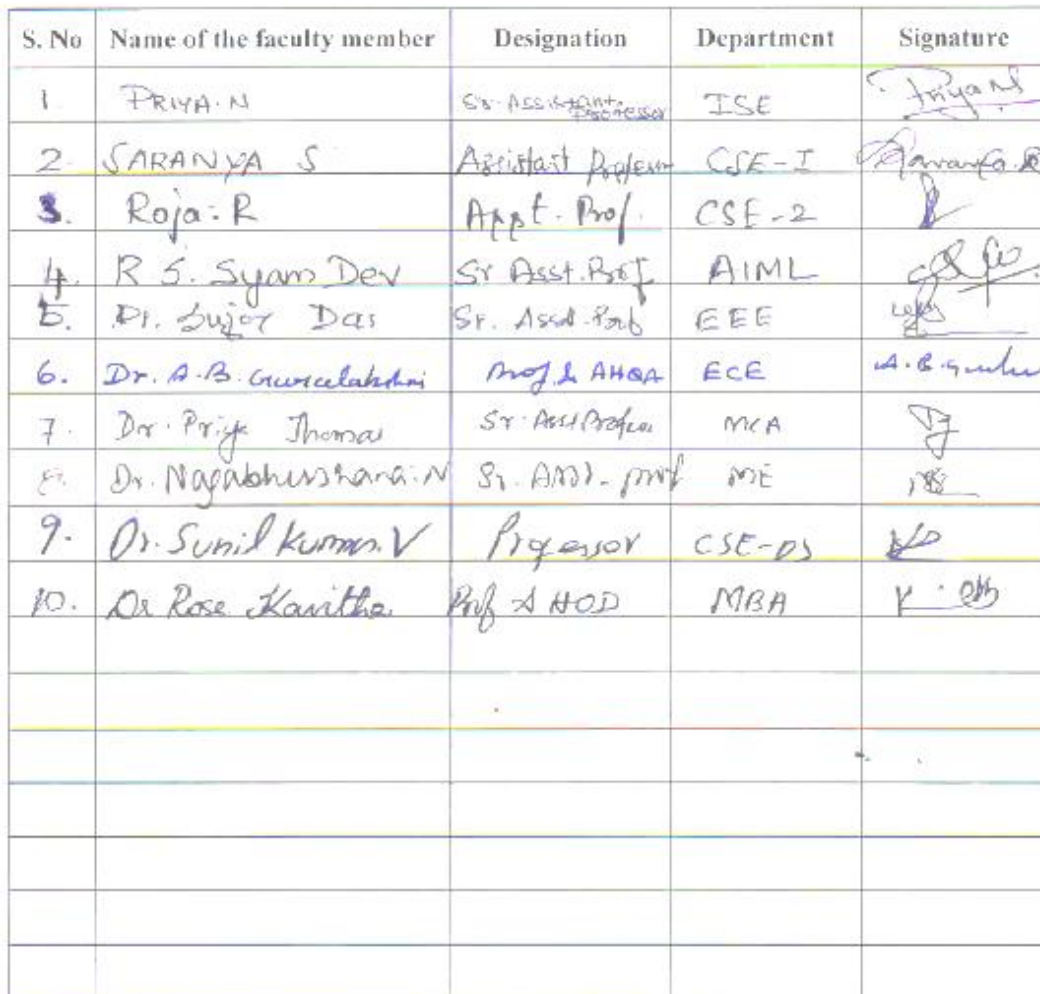 S. No Name of the faculty member Designation Department Signature
1 PRIYA. N Sr. Assistant Professor ISE Priya N
2 SARANYA S Assistant Professor CSE-I Saranya. S
3. Roja. R Asst. Prof. CSE-2
4. R S. Syam Dev Sr Asst. Prof AIML
5. Dr. Sujoy Das Sr. Asst. Prof EEE
6. Dr. A.B. Gurulakshmi Prof & AHOD ECE A.B. Gurulu
7. Dr. Priya Thomas Sr. Asst Professor MCA
8. Dr. Nagabhushana. N Sr. Asst. prof ME
9. Dr. Sunil Kumar. V Professor CSE-DS
10. Dr Rose Kavitha Prof & HOD MBA